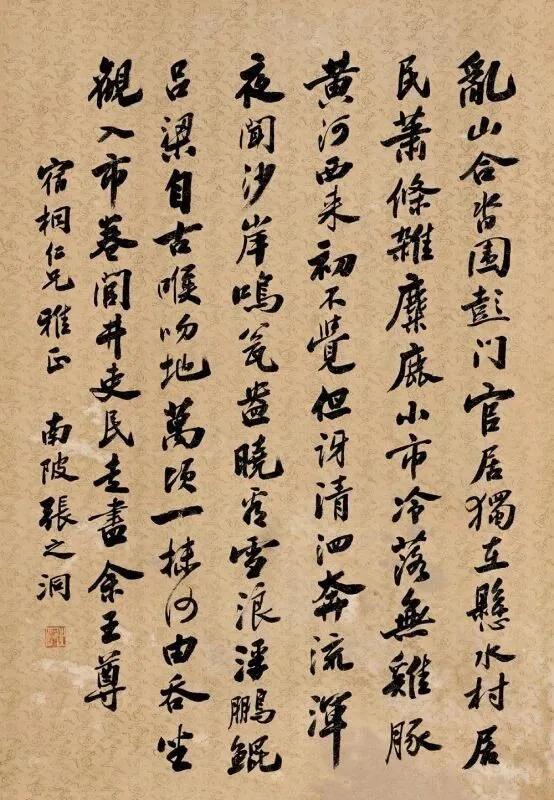 亂山合沓围彭门官居獨在懸水村居
民蕭條雜麋鹿小市冷落無雞豚
黄河西来初不覺但讶清泗奔流渾
夜聞沙岸鳴瓮盎曉看雪浪浮鵬鯤
吕梁自古喉吻地萬頃一抹何由吞坐
觀入市卷閭井吏民走盡余王尊
宿桐仁兄雅正 南陂張之洞